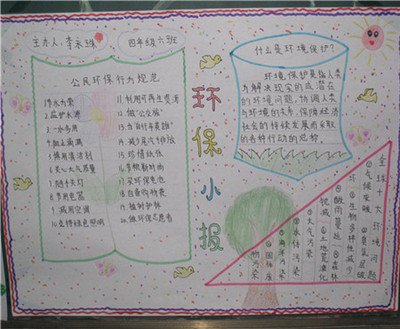 主办人：李永琦
四年级六班
公民环保行为规范
1.节水为荣
2.监护水源
3.一水多用
4.阻止滴漏
5.慎用清洁剂
6.关心大气质量
7.随手关灯
8.节用电器
9.减用空调
10.支持绿色照明
11.利用可再生资源
12.做"公交族"
13.当"自行车英雄"
14.减少尾气排放
15.珍惜纸张
16.节粮新时尚
17.买环保电池
18.自备购物袋
19.植树护林
20.做环保志愿者
环保小报
什么是环境保护？
环境保护是指人类
为解决现实的或潜在
的环境问题，协调人类
与环境的关系，保障经济
社会的持续发展而采取
的各种行动的总称。
全球十大环境问题
①气候变暖
②臭氧层破坏
③生物多样性减少
④酸雨蔓延
⑤森林锐减
⑥土地荒漠化
⑦大气污染
⑧水体污染
⑨海洋污染
⑩固体废物污染